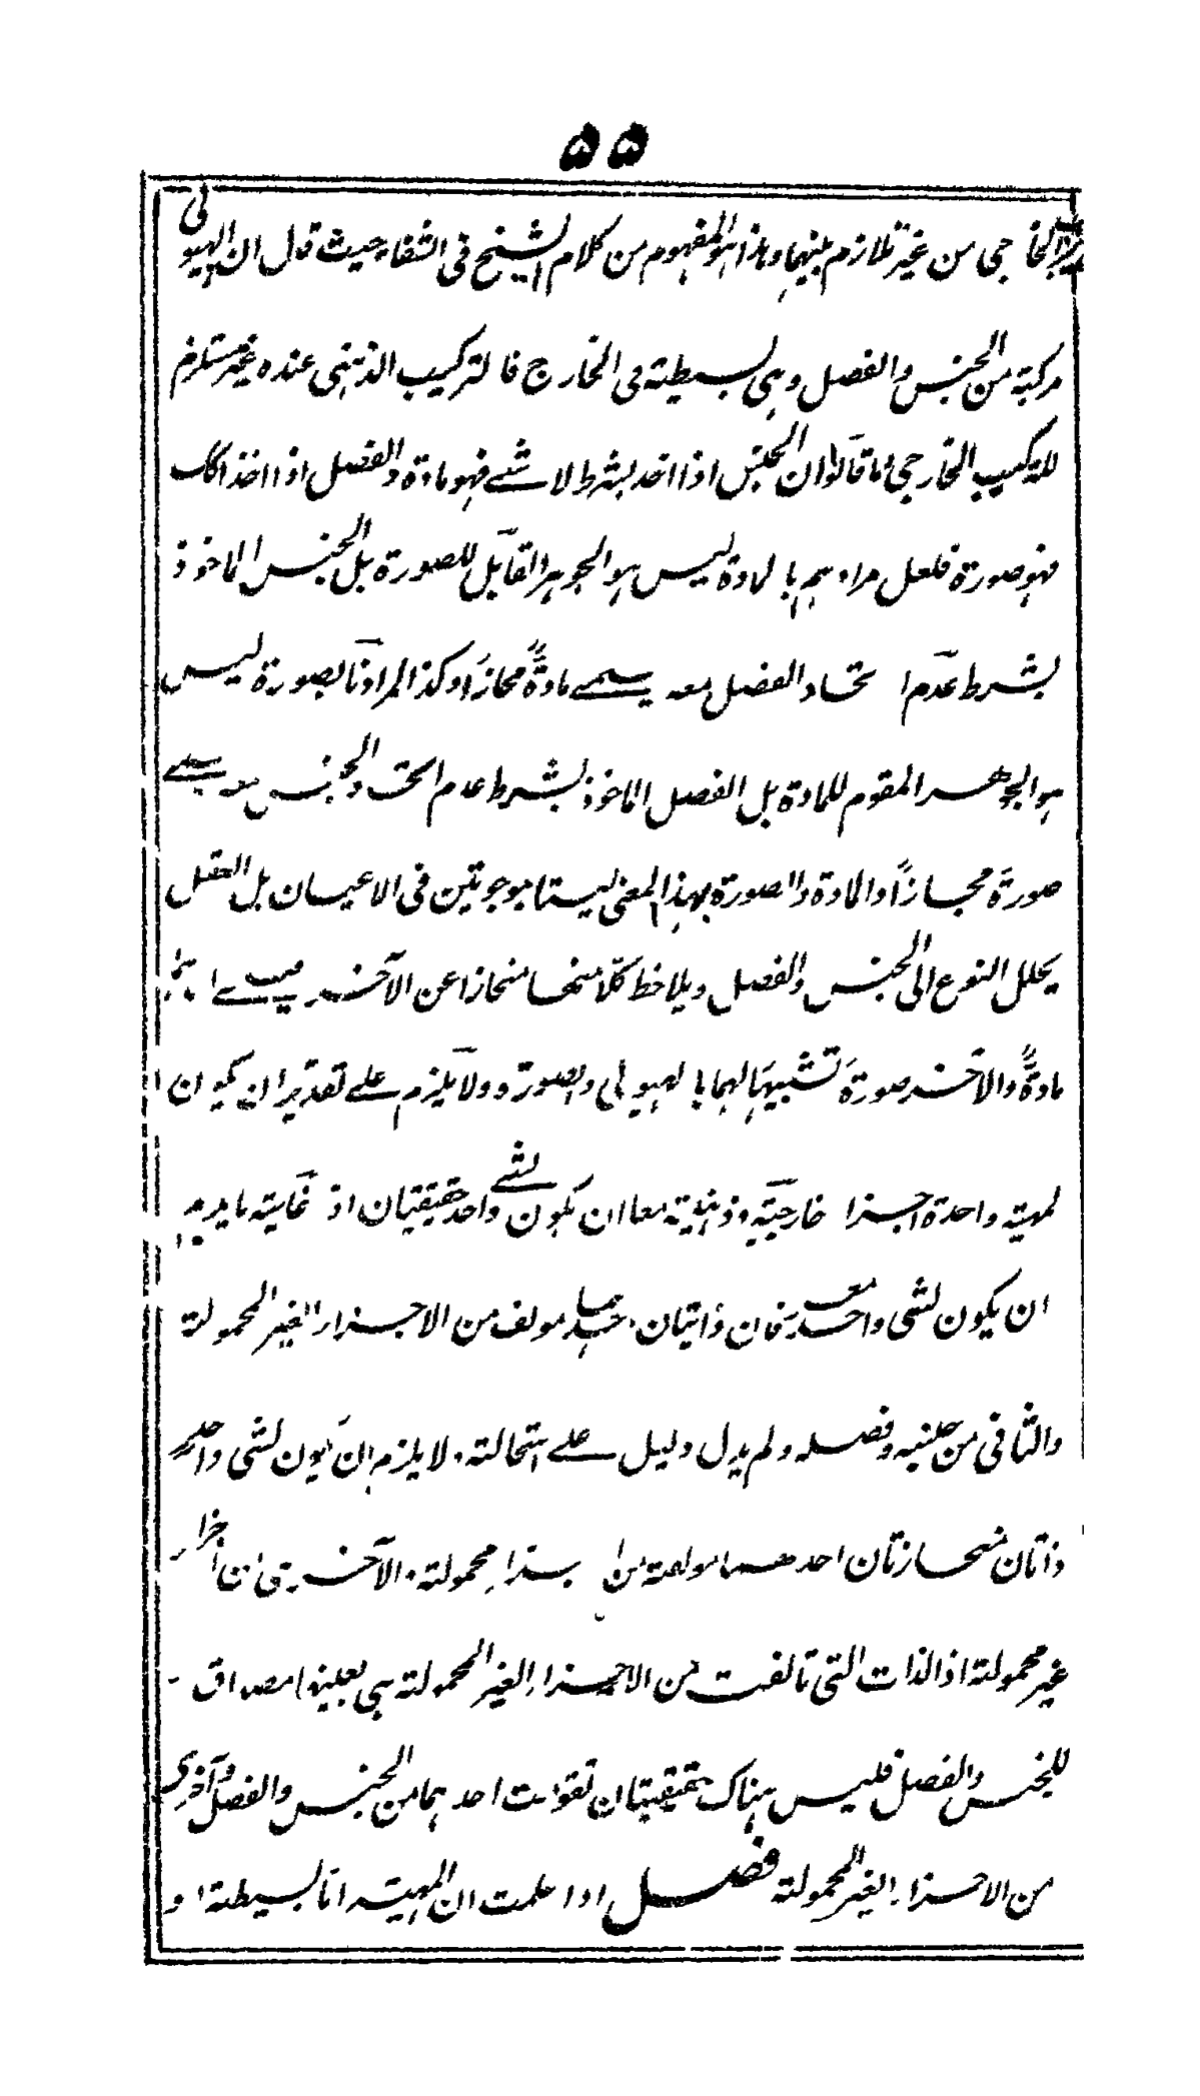 ۵۵
الخارجي من غير تلازم بينهما وهذا هو المفهوم من كلام الشيخ في الشفاء حيث قال ان الهيولى
مركبة من الجنس والفصل وهي بسيطة في الخارج فالتركيب الذهني عنده غير مستلزم
للتركيب الخارجي اما قالوا ان الجنس اذا اخذ بشرط لا شئ فهو مادة والفصل اذا اخذ كك
فهو صورة فلعل مرادهم بالمادة ليس هو الجوهر القابل للصورة بل الجنس الماخوذ
بشرط عدم اتحاد الفصل معه يسمى مادةً مجازًا وكذا المراد بالصورة ليس
هو الجوهر المقوم للمادة بل الفصل الماخوذ بشرط عدم اتحاد الجنس معه يسمى
صورةً مجازًا والمادة والصورة بهذا المعنى ليستا موجودتين في الاعيان بل العقل
يحلل النوع الى الجنس والفصل ويلاحظ كلا منهما منحازا عن الآخر فيسمى احدهما
مادةً والآخر صورةً تشبيهًا لهما بالهيولى والصورة ولا يلزم على تقدير ان يكون
لمهية واحدة اجزا خارجية وذهنية معا ان يكون لشئ واحد حقيقتان اذ غاية ما يلزم
ان يكون لشئ واحد معرفان ذاتيان احدهما مولف من الاجزاء الغير المحمولة
والثاني من جنسه وفصله ولم يدل دليل على استحالته ولا يلزم ان يكون لشئ واحد
ذاتان منحازتان احدهما مولفة من اجزاء محمولة والآخرى من اجزاء
غير محمولة اذ الذات التي تالفت من الاجزاء الغير المحمولة هي بعينها مصداق
للجنس والفصل فليس هناك حقيقتان تقومت احدهما من الجنس والفصل وآخرى
من الاجزاء الغير المحمولة فصل اذا علمت ان المهية اما بسيطة او